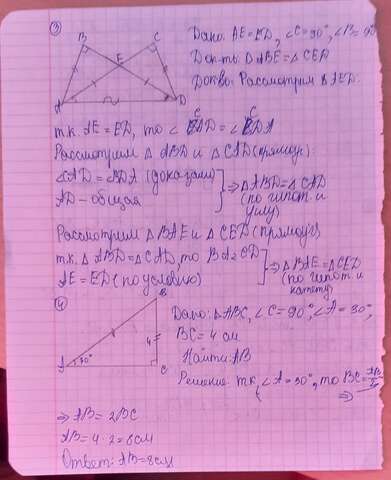 ③
B C
E
A D
Дано: AE = ED, ∠C = 90°, ∠B = 90°
Док-ть: △ ABE = △ CED
Док-во: Рассмотрим △ AED.
т.к. AE = ED, то ∠ CAD = ∠ BDA
Рассмотрим △ ABD и △ CAD (прямоуг.)
∠CAD = ∠BDA (доказали)
AD - общая
⇒ △ ABD = △ CAD
(по гипот. и
углу)
Рассмотрим △ BAE и △ CED (прямоуг)
т.к. △ ABD = △ CAD, то BA = CD
AE = ED (по условию)
⇒ △ BAE = △ CED
(по гипот и
катету)
④
B
A 30° 4 C
Дано: △ ABC, ∠C = 90°, ∠A = 30°,
BC = 4 см
Найти: AB
Решение: т.к. ∠A = 30°, то BC = AB/2 ⇒
⇒ AB = 2BC
AB = 4 · 2 = 8 см
Ответ: AB = 8 см